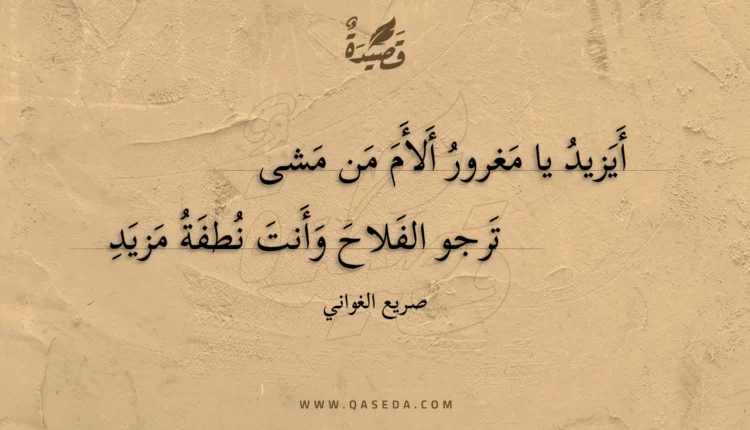 قَصِيدَةٌ
أَيَزيدُ يا مَغرورُ أَلأَمَ مَن مَشى
تَرجو الفَلاحَ وَأَنتَ نُطفَةُ مَزيَدِ
صريع الغواني
WWW.QASEDA.COM